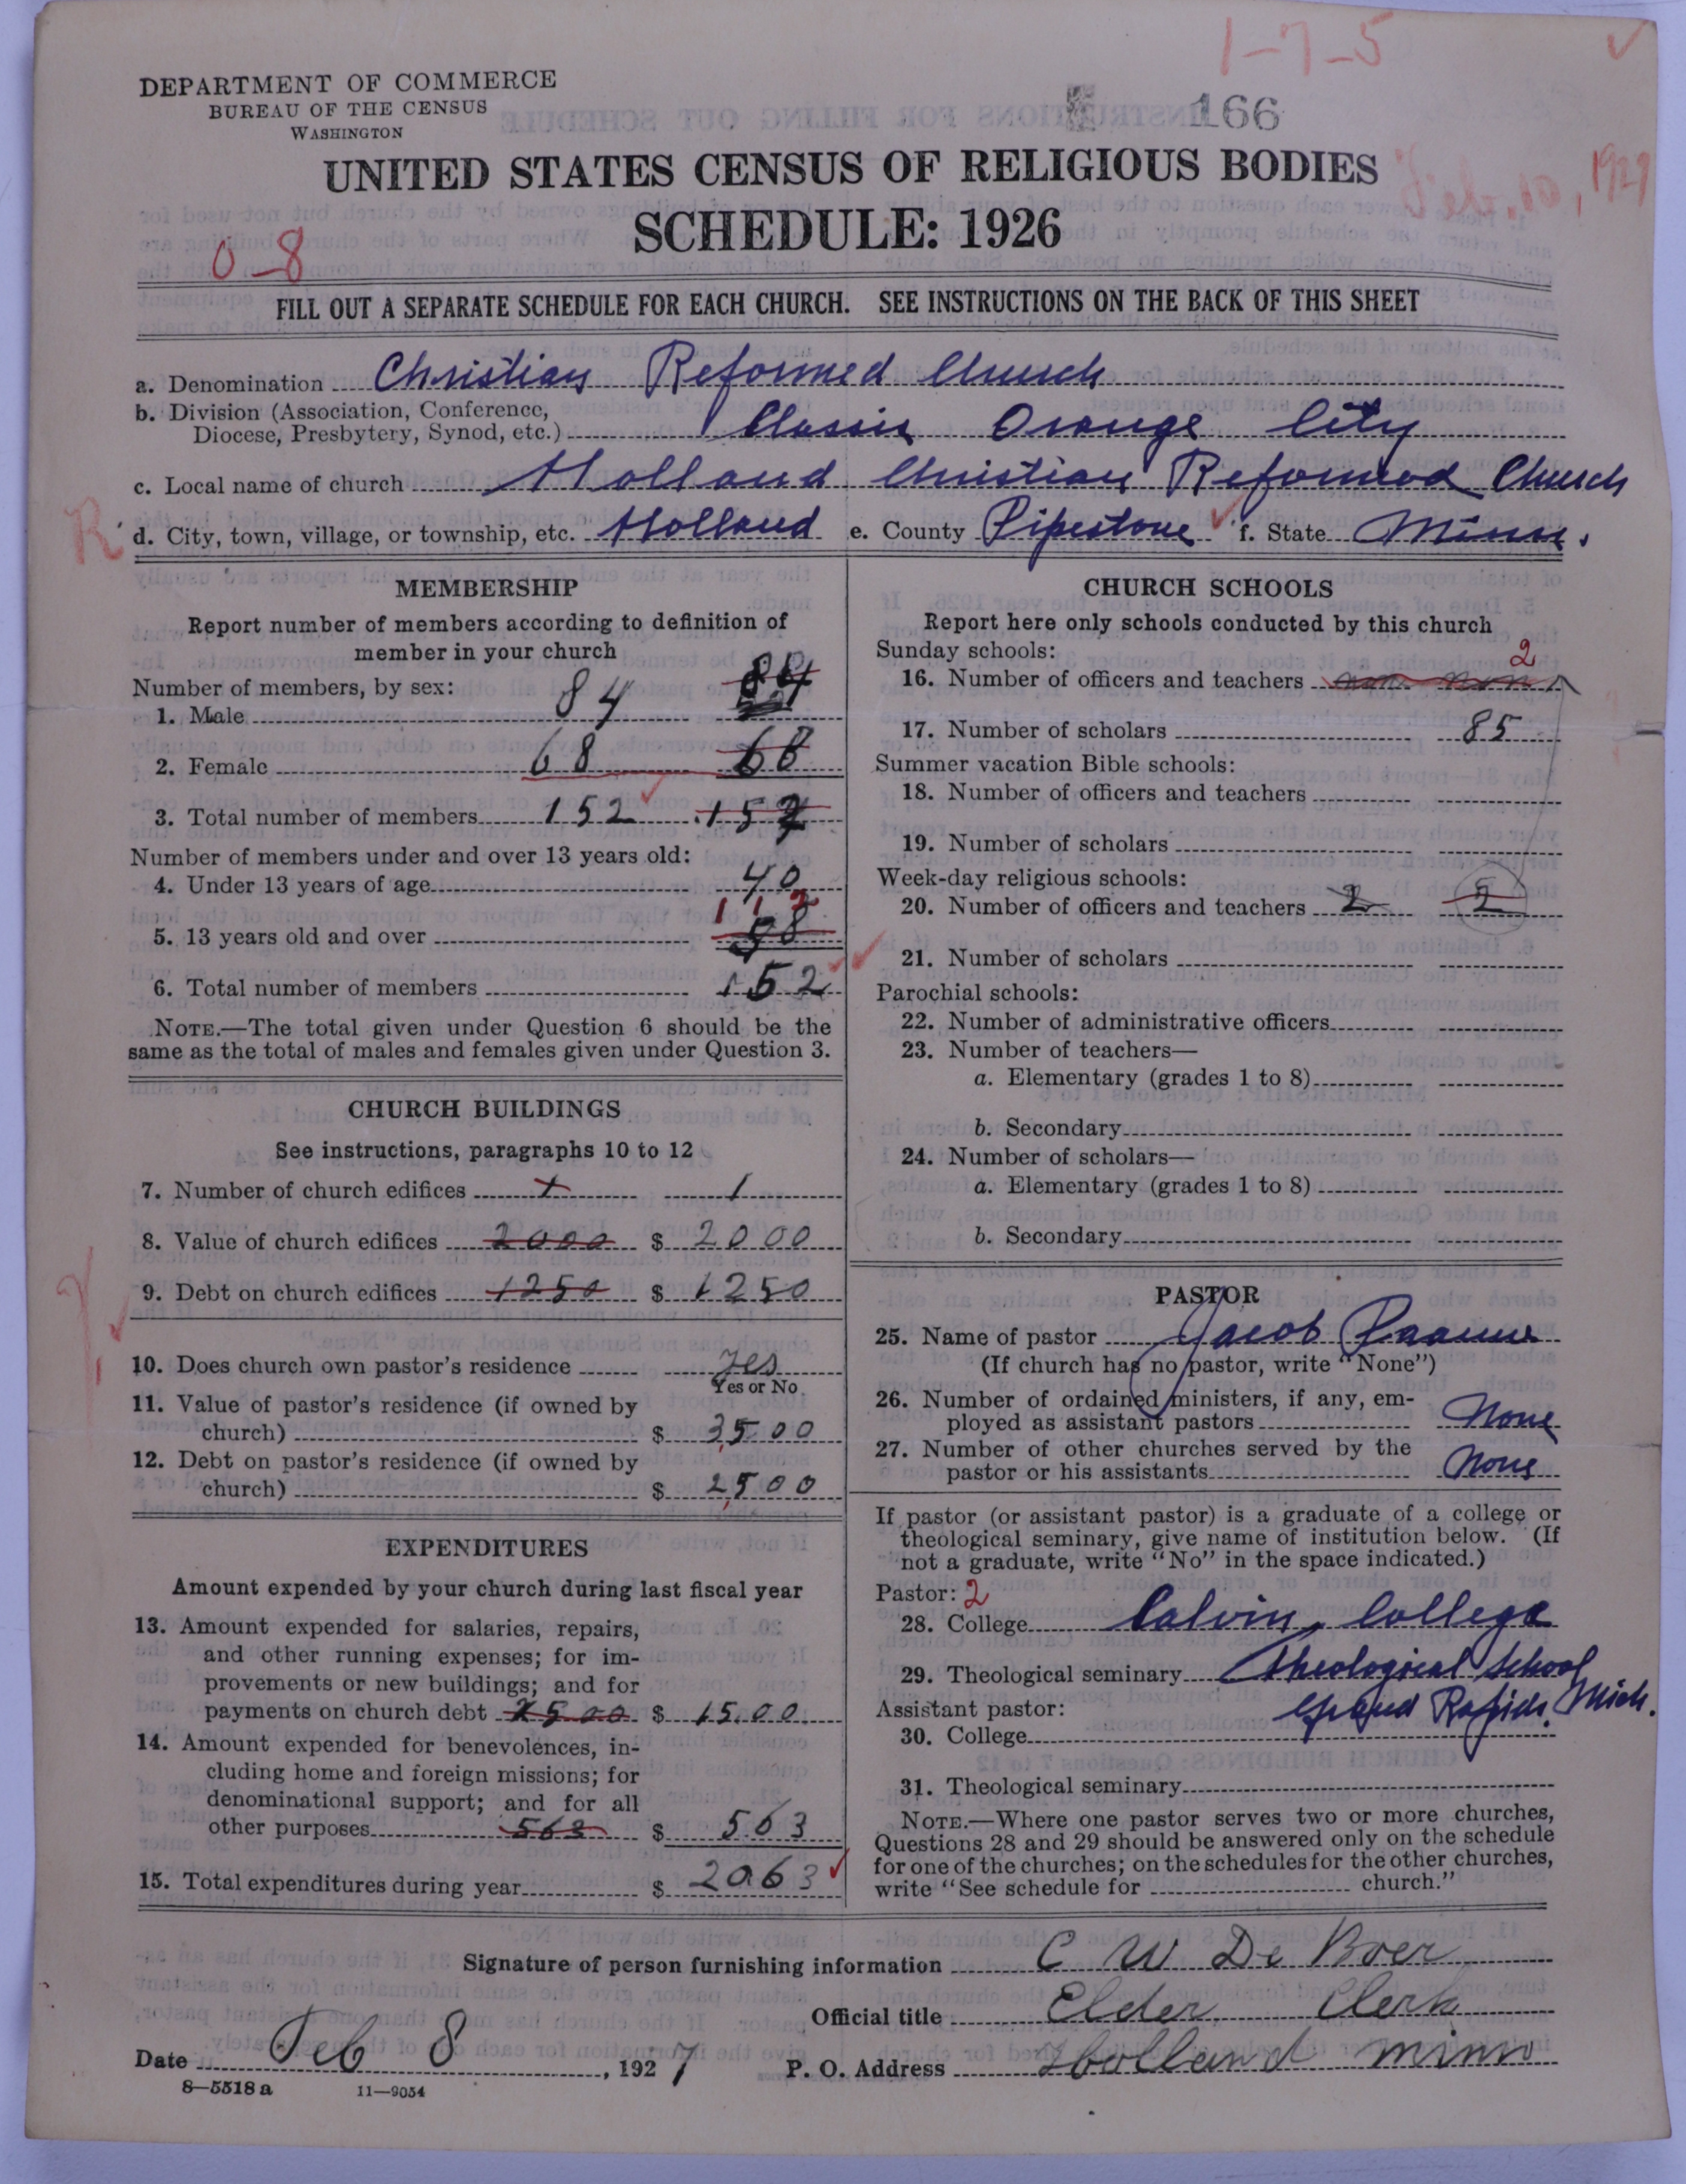 1-7-5
DEPARTMENT OF COMMERCE
BUREAU OF THE CENSUS
WASHINGTON
166
UNITED STATES CENSUS OF RELIGIOUS BODIES
SCHEDULE: 1926
Feb. 10, 1927
0-8
FILL OUT A SEPARATE SCHEDULE FOR EACH CHURCH. SEE INSTRUCTIONS ON THE BACK OF THIS SHEET
a. Denomination Christian Reformed Church
b. Division (Association, Conference,
Diocese, Presbytery, Synod, etc.) Classis Orange City
c. Local name of church Holland Christian Reformed Church
R d. City, town, village, or township, etc. Holland e. County Pipestone f. State Minn.
MEMBERSHIP
Report number of members according to definition of
member in your church
Number of members, by sex:
1. Male 84 84
2. Female 68 68
3. Total number of members 152 152
Number of members under and over 13 years old:
4. Under 13 years of age 40
112
5. 13 years old and over
6. Total number of members 152
NOTE.—The total given under Question 6 should be the
same as the total of males and females given under Question 3.
CHURCH BUILDINGS
See instructions, paragraphs 10 to 12
7. Number of church edifices 1 1
8. Value of church edifices 2000 $ 2000
9. Debt on church edifices 1250 $ 1250
10. Does church own pastor's residence yes
Yes or No
11. Value of pastor's residence (if owned by
church) $ 3500
12. Debt on pastor's residence (if owned by
church) $ 2500
EXPENDITURES
Amount expended by your church during last fiscal year
13. Amount expended for salaries, repairs,
and other running expenses; for im-
provements or new buildings; and for
payments on church debt 1500 $ 1500
14. Amount expended for benevolences, in-
cluding home and foreign missions; for
denominational support; and for all
other purposes 563 $ 563
15. Total expenditures during year $ 2063
CHURCH SCHOOLS
Report here only schools conducted by this church
Sunday schools:
2
16. Number of officers and teachers
17. Number of scholars 85
Summer vacation Bible schools:
18. Number of officers and teachers
19. Number of scholars
Week-day religious schools:
20. Number of officers and teachers 2 2
21. Number of scholars
Parochial schools:
22. Number of administrative officers
23. Number of teachers—
a. Elementary (grades 1 to 8)
b. Secondary
24. Number of scholars—
a. Elementary (grades 1 to 8)
b. Secondary
PASTOR
25. Name of pastor Jacob Paauw
(If church has no pastor, write "None")
26. Number of ordained ministers, if any, em-
ployed as assistant pastors None
27. Number of other churches served by the
pastor or his assistants None
If pastor (or assistant pastor) is a graduate of a college or
theological seminary, give name of institution below. (If
not a graduate, write "No" in the space indicated.)
Pastor: 2
28. College Calvin College
29. Theological seminary Theological School
Assistant pastor: Grand Rapids. Mich.
30. College
31. Theological seminary
NOTE.—Where one pastor serves two or more churches,
Questions 28 and 29 should be answered only on the schedule
for one of the churches; on the schedules for the other churches,
write "See schedule for church."
Signature of person furnishing information C W De Boer
Official title Elder Clerk
Date Feb 8, 1927 P. O. Address Holland Minn
8—5518 a 11—9054